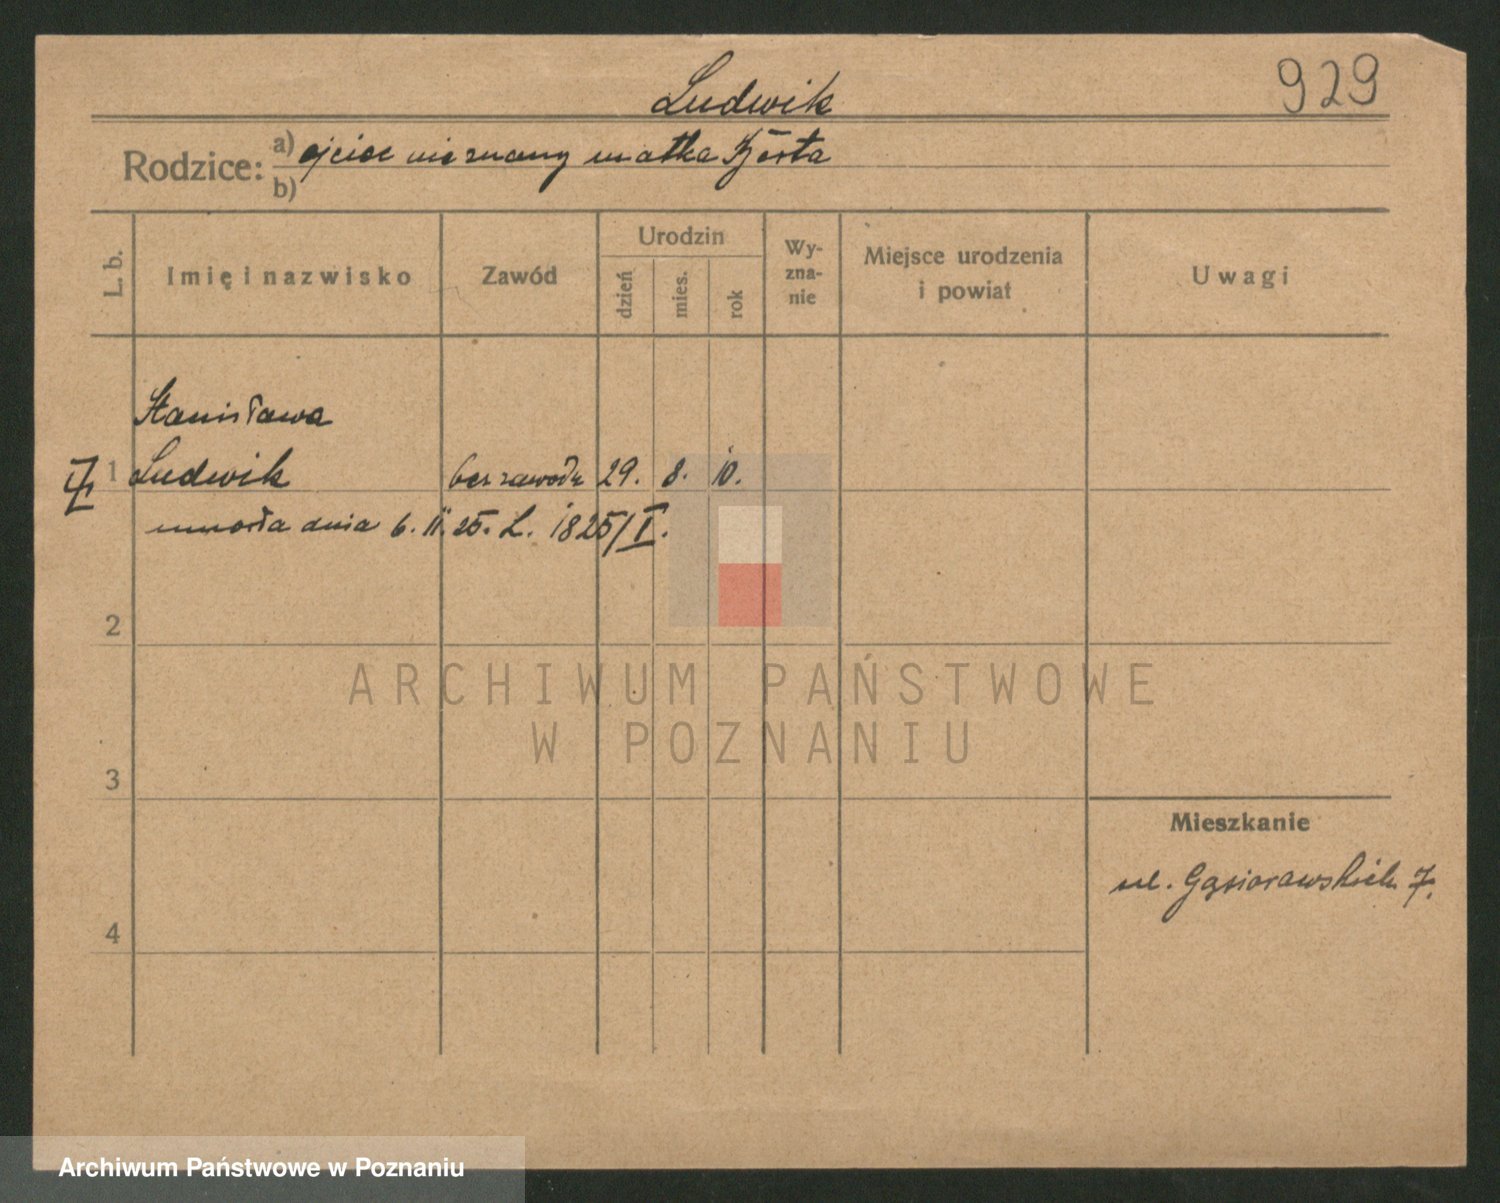 Ludwik
929
Rodzice: a) ojciec nieznany matka
b)
L. b.
Imię i nazwisko
Zawód
Urodzin
dzień
mies.
rok
Wy-
zna-
nie
Miejsce urodzenia
i powiat
Uwagi
Stanisława
1 Ludwik bez zawodu 29. 8. 10.
umarła dnia 6. II. 25. L. 1825/I.
2
3
4
Mieszkanie
ul. Gąsiorowskich 7.
ARCHIWUM PAŃSTWOWE
W POZNANIU
Archiwum Państwowe w Poznaniu